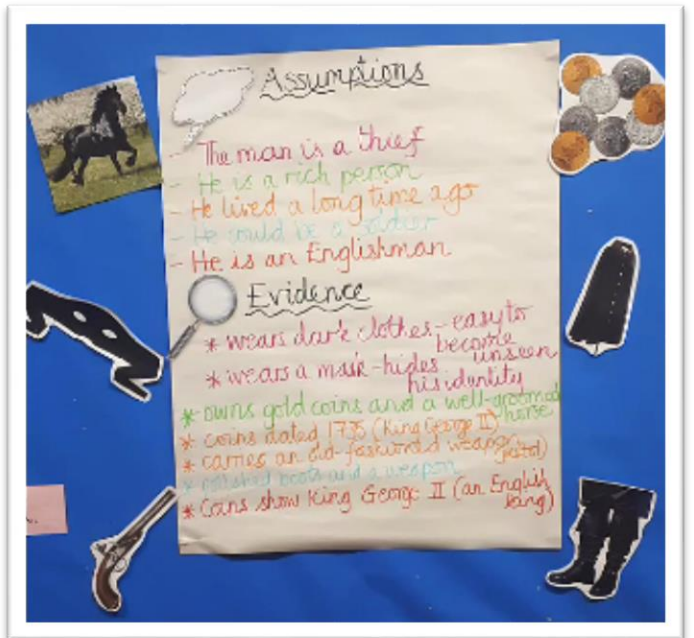 Assumptions
- The man is a thief
- He is a rich person
- He lived a long time ago
- He could be a soldier
- He is an Englishman
Evidence
* wears dark clothes - easy to
become
unseen
* wears a mask - hides
his identity
* owns gold coins and a well-groomed
horse
* coins dated 1735 (King George II)
* carries an old-fashioned weapon
(pistol)
* polished boots and a weapon
* Coins show King George II (an English
king)